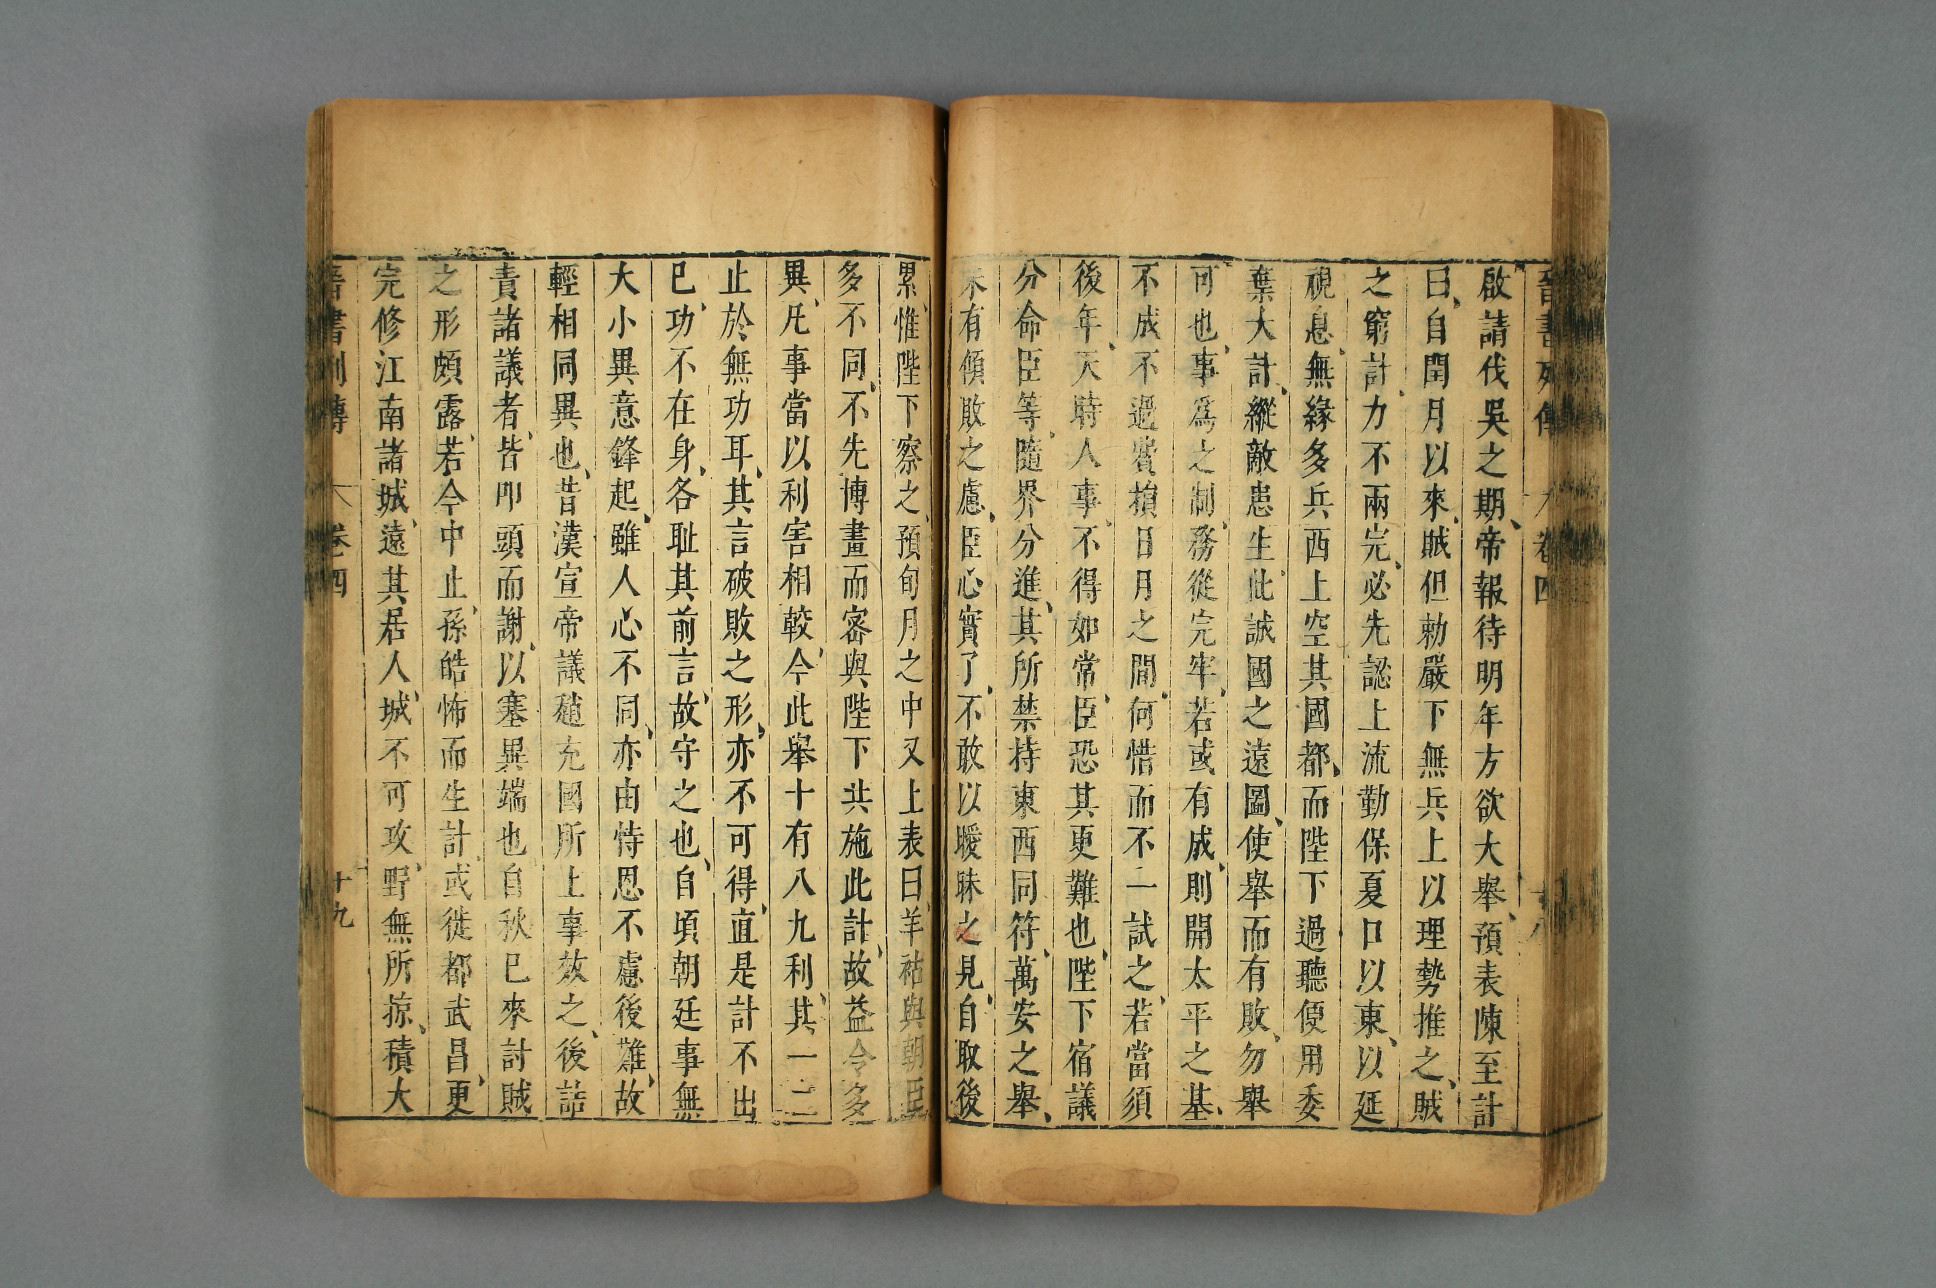 晉書列傳 卷四 十八
啟請伐吳之期帝報待明年方欲大舉預表陳至計
曰自閏月以來賊但勅嚴下無兵上以理勢推之賊
之窮計力不兩完必先認上流勤保夏口以東以延
視息無緣多兵西上空其國都而陛下過聽便用委
棄大計縱敵患生此誠國之遠圖使舉而有敗勿舉
可也事為之制務從完牢若或有成則開太平之基
不成不過費損日月之間何惜而不一試之若當須
後年天時人事不得如常臣恐其更難也陛下宿議
分命臣等隨界分進其所禁持東西同符萬安之舉
未有傾敗之慮臣心實了不敢以曖昧之見自取後
累惟陛下察之預旬月之中又上表曰羊祜與朝臣
多不同不先博畫而密與陛下共施此計故益令多
異凡事當以利害相較今此舉十有八九利其一二
止於無功耳其言破敗之形亦不可得直是計不出
已功不在身各恥其前言故守之也自頃朝廷事無
大小異意鋒起雖人心不同亦由恃恩不慮後難故
輕相同異也昔漢宣帝議趙充國所上事效之後詰
責諸議者皆叩頭而謝以塞異端也自秋已來討賊
之形頗露若今中止孫皓怖而生計或徙都武昌更
完修江南諸城遠其居人城不可攻野無所掠積大
晉書列傳 卷四 十九